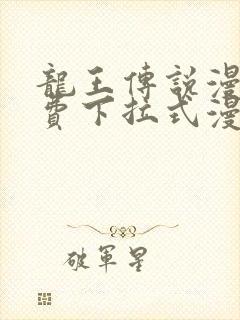 龍王傳說漫
費下拉式漫
破軍星